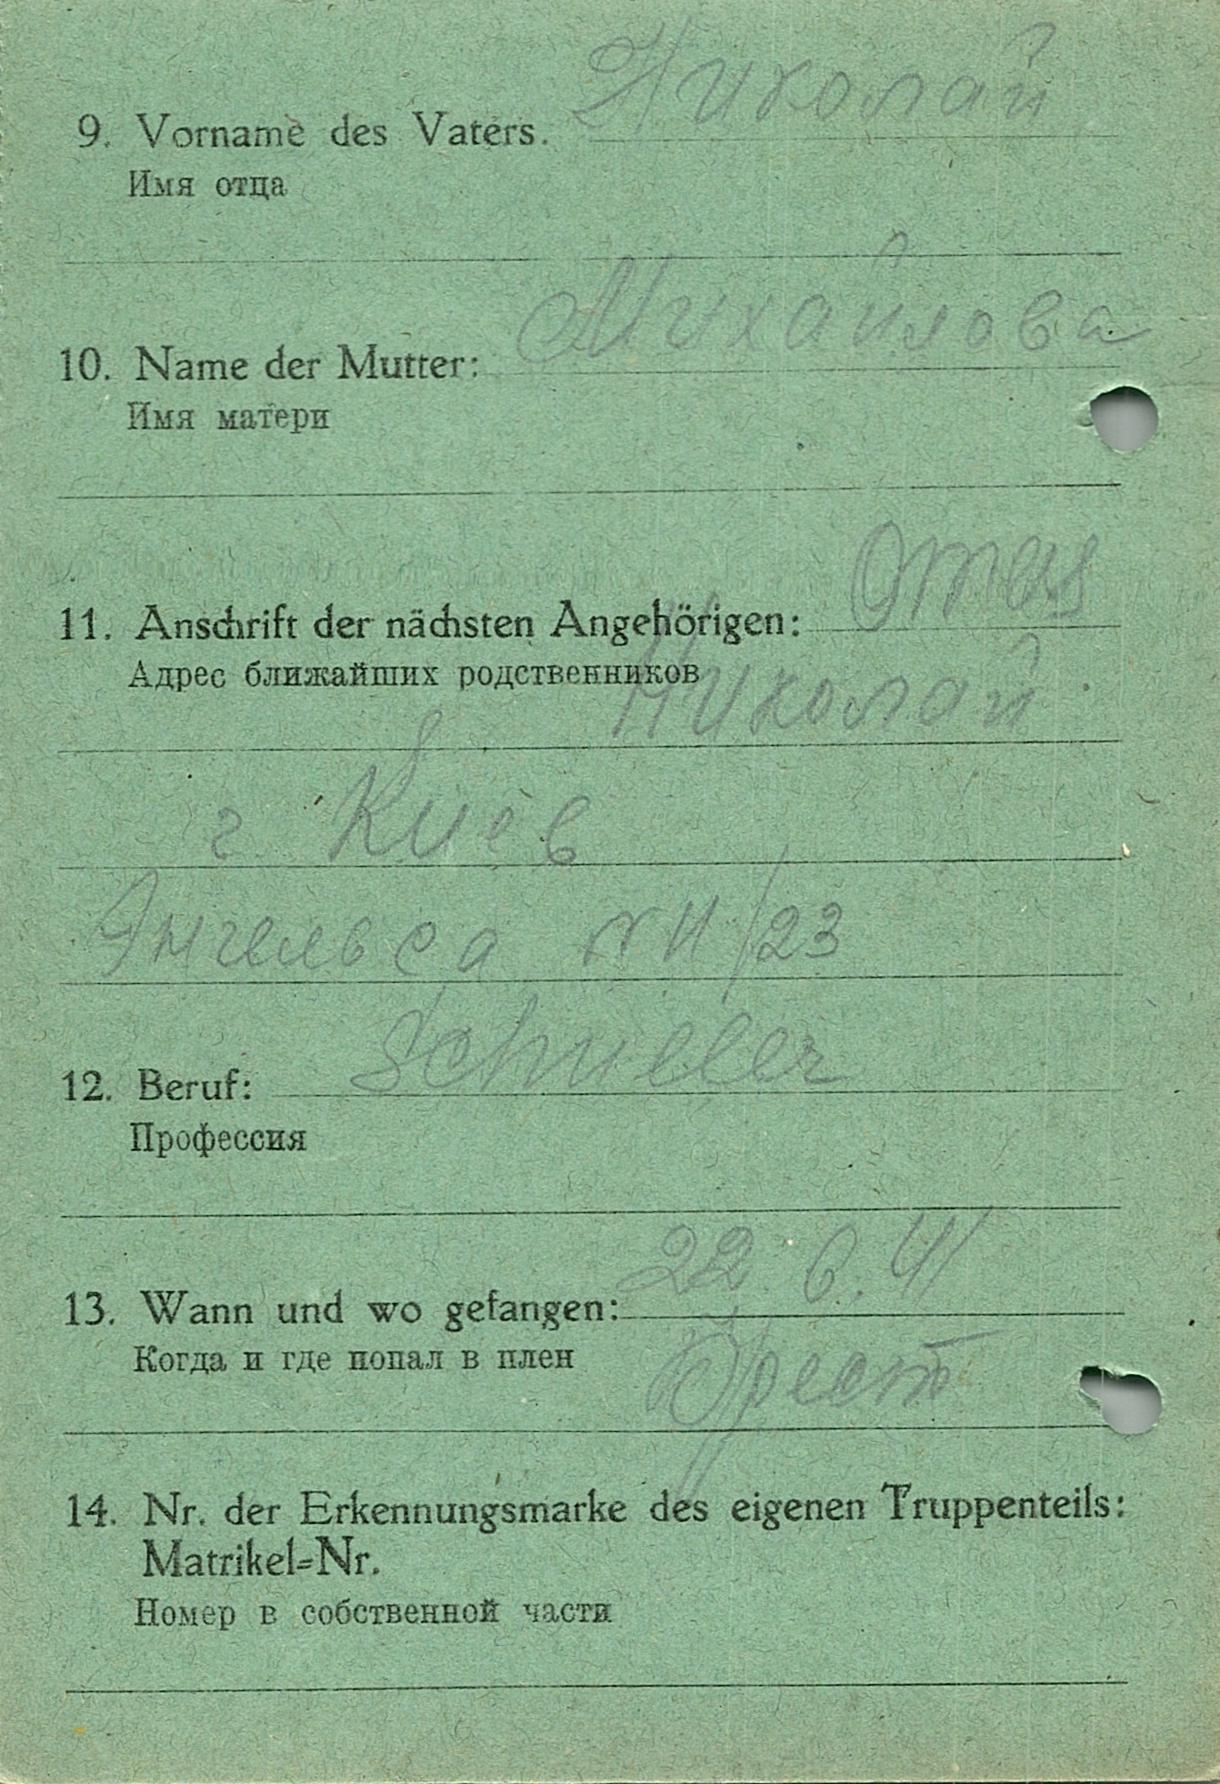 Николай
9. Vorname des Vaters.
Имя отца
Михайлова
10. Name der Mutter:
Имя матери
11. Anschrift der nächsten Angehörigen: Отец
Адрес ближайших родственников Николай
г. Киев
Энгельса N 11/23
12. Beruf: Schueler
Профессия
13. Wann und wo gefangen: 22.6.41
Когда и где попал в плен Брест
14. Nr. der Erkennungsmarke des eigenen Truppenteils:
Matrikel-Nr.
Номер в собственной части